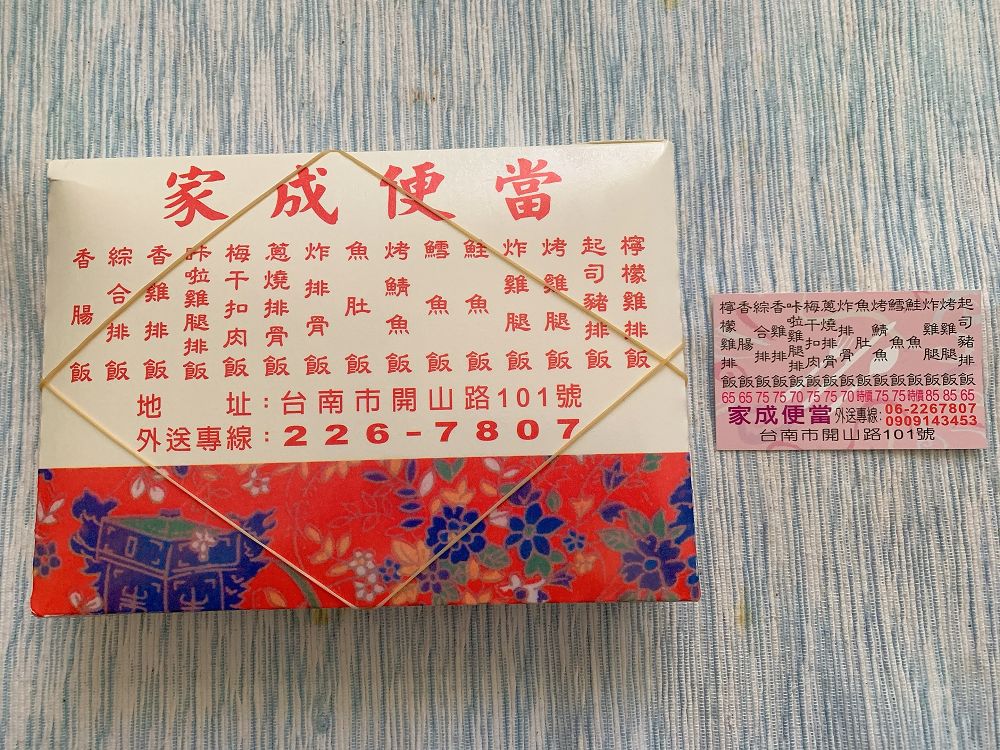 家成便當
香腸飯
綜合排飯
香雞排飯
咔啦雞腿排飯
梅干扣肉飯
蔥燒排骨飯
炸排骨飯
魚肚飯
烤鯖魚飯
鱈魚飯
鮭魚飯
炸雞腿飯
烤雞腿飯
起司豬排飯
檸檬雞排飯
地 址:台南市開山路101號
外送專線:226-7807
檸檬雞排飯
香腸飯
綜合排飯
香雞排飯
咔啦雞腿排飯
梅干扣肉飯
蔥燒排骨飯
炸排骨飯
魚肚飯
烤鯖魚飯
鱈魚飯
鮭魚飯
炸雞腿飯
烤雞腿飯
起司豬排飯
65 65 75 75 70 75 75 70 時價 75 75 時價 85 85 65
家成便當 外送專線: 06-2267807
0909143453
台南市開山路101號